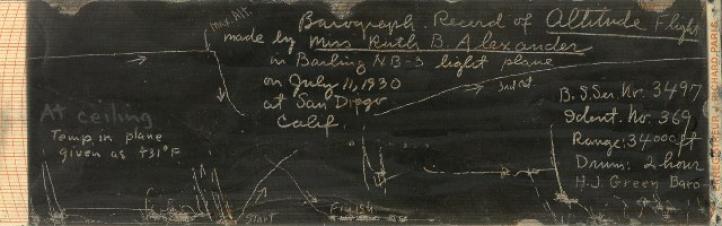 Max. Alt.
Barograph Record of Altitude Flight
made by Miss Ruth B. Alexander
in Barling NB-3 light plane
on July 11, 1930
at San Diego
Calif.
At ceiling
Temp. in plane
given as +31°F
2nd
B.S. Ser. Nr. 3497
Ident. No. 369
Range: 34000 ft
Drum: 2 hour
H.J. Green Baro
Start
Finish